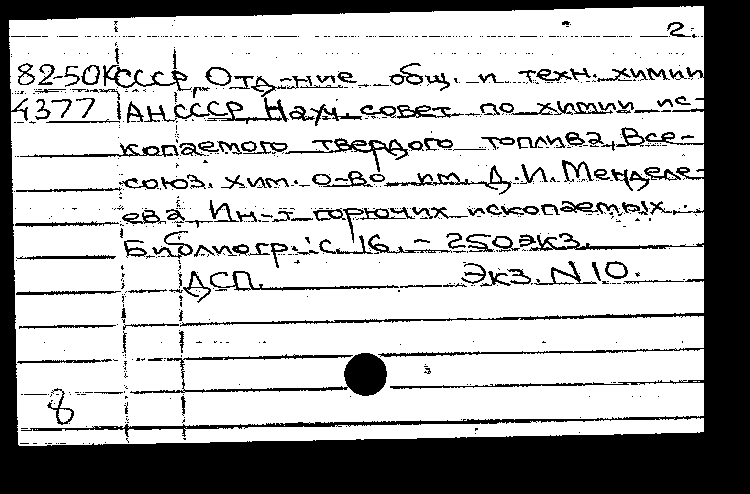 2.
82-50К СССР, Отд-ние общ. и техн. химии
4377 АН СССР, Науч. совет по химии ис-
копаемого твердого топлива, Все-
союз. хим. о-во им. Д.И. Менделе-
ева, Ин-т горючих ископаемых.
Библиогр.: с. 16. - 250 экз.
ДСП. Экз. N 10.
8